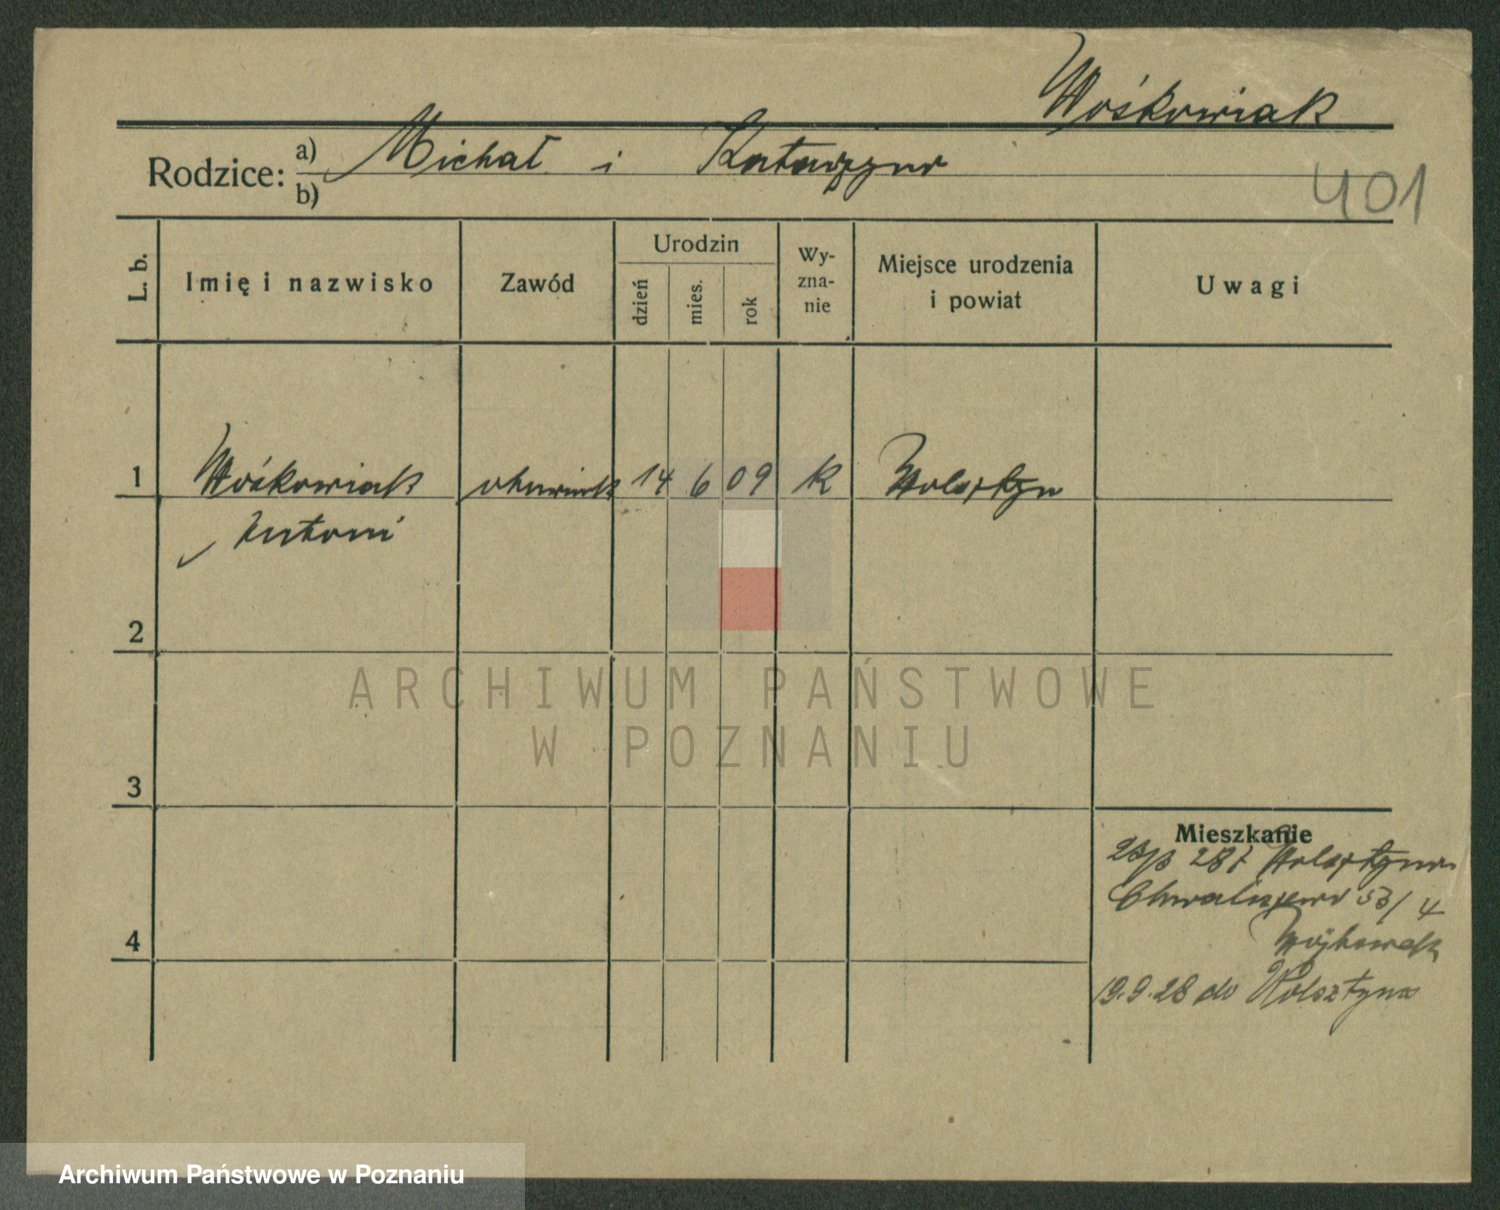 Wośkowiak
Rodzice: a) Michał i Katarzyna
b)
401
L. b.
Imię i nazwisko
Zawód
Urodzin
dzień
mies.
rok
Wy-
zna-
nie
Miejsce urodzenia
i powiat
Uwagi
1 Wośkowiak 14 6 09 k Wolsztyn
Antoni
2
3
4
Mieszkanie
28 z Wolsztyna
53/4
19.9.28 do Wolsztyna
ARCHIWUM PAŃSTWOWE
W POZNANIU
Archiwum Państwowe w Poznaniu